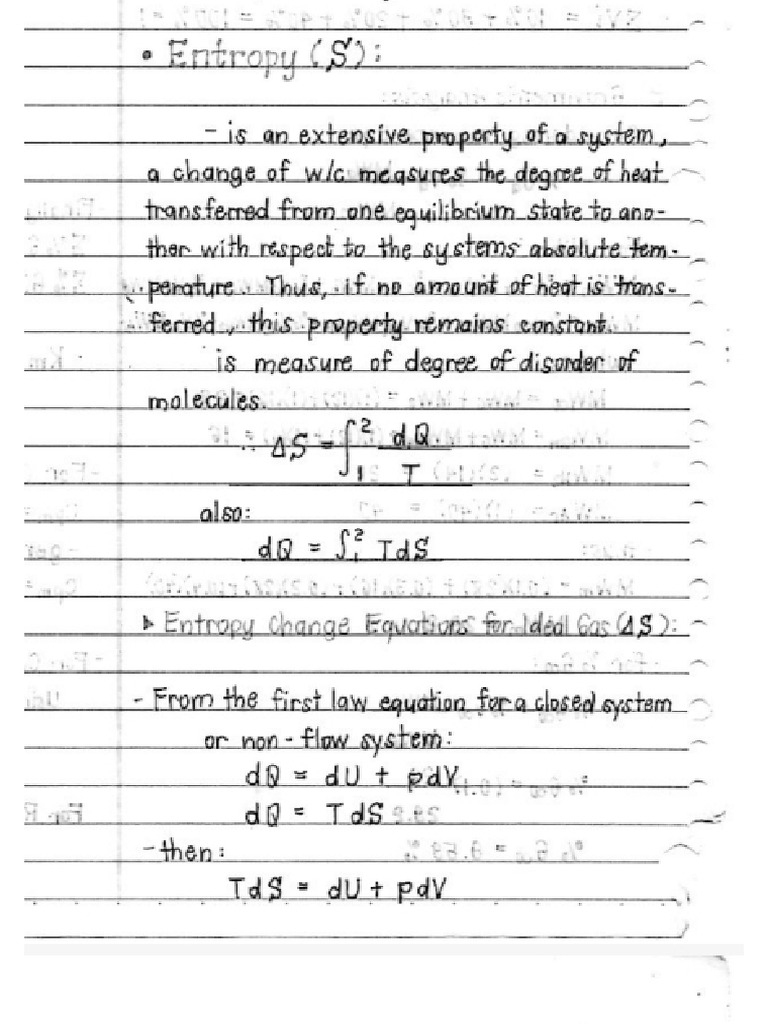 • Entropy (S):
- is an extensive property of a system,
a change of w/c measures the degree of heat
transferred from one equilibrium state to ano-
ther with respect to the systems absolute tem-
perature. Thus, if no amount of heat is trans-
ferred, this property remains constant.
is measure of degree of disorder of
molecules.
∴ ΔS = ∫₁² dQ/T
also:
dQ = ∫₁² TdS
▸ Entropy Change Equations for Ideal Gas (ΔS):
- From the first law equation for a closed system
or non-flow system:
dQ = dU + pdV
dQ = TdS
- then:
TdS = dU + pdV